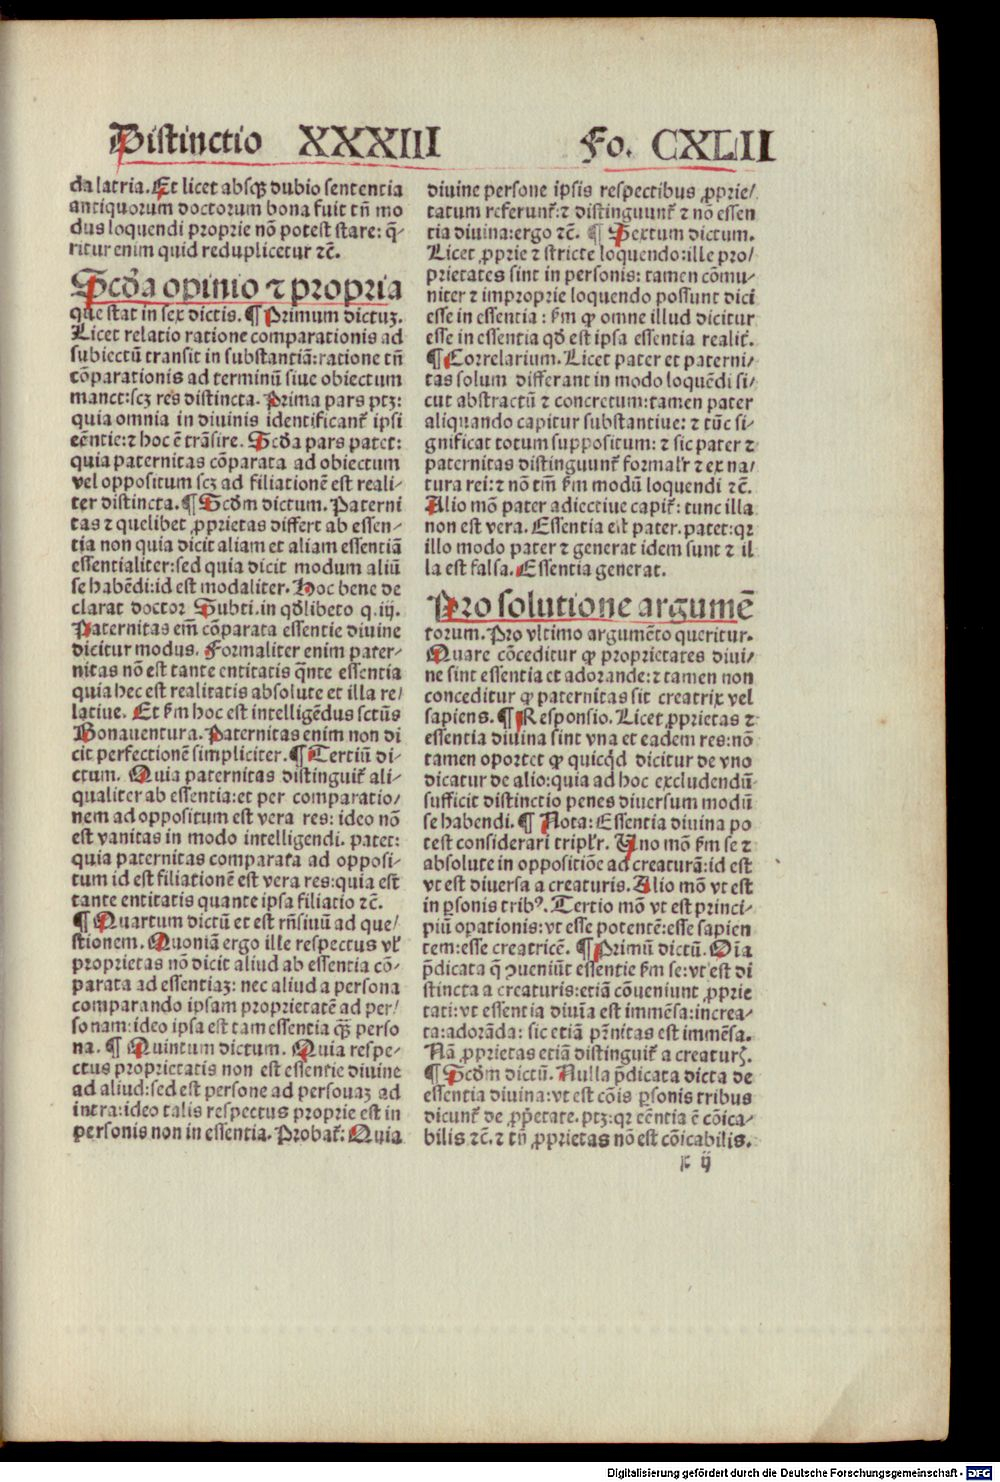 Distinctio XXXIII Fo. CXLII
da latria. Et licet absq̃ dubio sententia
antiquorum doctorum bona fuit tñ mo
dus loquendi proprie nõ potest stare: q̃-
ritur enim quid reduplicetur ⁊c̃.
Scđa opinio ⁊ propria
que stat in sex dictis. ¶ Primum dictuꝫ.
Licet relatio ratione comparationis ad
subiectũ transit in substantiã: ratione tñ
cõparationis ad terminũ siue obiectum
manet: scꝫ res distincta. Prima pars ptꝫ:
quia omnia in diuinis identificant̃ ipsi
eẽntie: ⁊ hoc ẽ trãsire. Scđa pars patet:
quia paternitas cõparata ad obiectum
vel oppositum scꝫ ad filiationẽ est reali-
ter distincta. ¶ Scđm dictum. Paterni
tas ⁊ quelibet ꝓprietas differt ab essen-
tia non quia dicit aliam et aliam essentiã
essentialiter: sed quia dicit modum aliũ
se habẽdi: id est modaliter. Hoc bene de
clarat doctor Subti. in qđlibeto q. iij.
Paternitas em̃ cõparata essentie diuine
dicitur modus. Formaliter enim pater-
nitas nõ est tante entitatis q̃nte essentia
quia hec est realitatis absolute et illa re/
latiue. Et ẜm hoc est intelligẽdus sctũs
Bonauentura. Paternitas enim non di
cit perfectionẽ simpliciter. ¶ Tertiũ di-
ctum. Quia paternitas distinguit̃ ali-
qualiter ab essentia: et per comparatio/
nem ad oppositum est vera res: ideo nõ
est vanitas in modo intelligendi. patet:
quia paternitas comparata ad opposi-
tum id est filiationẽ est vera res: quia est
tante entitatis quante ipsa filiatio ⁊c̃.
¶ Quartum dictũ et est rñsiuũ ad que/
stionem. Quoniã ergo ille respectus vł
proprietas nõ dicit aliud ab essentia cõ-
parata ad essentiaꝫ: nec aliud a persona
comparando ipsam proprietatẽ ad per/
sonam: ideo ipsa est tam essentia q̃ꝫ perso
na. ¶ Quintum dictum. Quia respe-
ctus proprietatis non est essentie diuine
ad aliud: sed est persone ad personaꝫ ad
intra: ideo talis respectus proprie est in
personis non in essentia. Probat̃: Quia
diuine persone ipsis respectibus ꝓprie/
tatum referunt̃: ⁊ distinguunt̃ ⁊ nõ essen
tia diuina: ergo ⁊c̃. ¶ Sextum dictum.
Licet ꝓprie ⁊ stricte loquendo: ille pro/
prietates sint in personis: tamen cõmu-
niter ⁊ improprie loquendo possunt dici
esse in essentia: ẜm ꝙ omne illud dicitur
esse in essentia qđ est ipsa essentia realit̃.
¶ Correlarium. Licet pater et paterni/
tas solum differant in modo loquẽdi si/
cut abstractũ ⁊ concretum: tamen pater
aliquando capitur substantiue: ⁊ tũc si-
gnificat totum suppositum: ⁊ sic pater ⁊
paternitas distinguunt̃ formałr ⁊ ex na/
tura rei: ⁊ nõ tm̃ ẜm modũ loquendi ⁊c̃.
Alio mõ pater adiectiue capit̃: tunc illa
non est vera. Essentia est pater. patet: qꝛ
illo modo pater ⁊ generat idem sunt ⁊ il
la est falsa. Essentia generat.
Pro solutione argumẽ
torum. Pro vltimo argumẽto queritur.
Quare cõceditur ꝙ proprietates diui/
ne sint essentia et adorande: ⁊ tamen non
conceditur ꝙ paternitas sit creatrix vel
sapiens. ¶ Responsio. Licet ꝓprietas ⁊
essentia diuina sint vna et eadem res: nõ
tamen oportet ꝙ quicq̃d dicitur de vno
dicatur de alio: quia ad hoc excludendũ
sufficit distinctio penes diuersum modũ
se habendi. ¶ Nota: Essentia diuina po
test considerari triplr̃. Uno mõ ẜm se ⁊
absolute in oppositiõe ad creaturã: id est
vt est diuersa a creaturis. Alio mõ vt est
in ꝑsonis tribꝰ. Tertio mõ vt est princi-
piũ oꝑationis: vt esse potentẽ: esse sapien
tem: esse creatricẽ. ¶ Primũ dictũ. Oĩa
p̃dicata q̃ ↄueniũt essentie ẜm se: vt est di
stincta a creaturis: etiã cõueniunt ꝓprie
tati: vt essentia diuĩa est immẽsa: increa-
ta: adorãda: sic etiã pr̃nitas est immẽsa.
Nã ꝓprietas etiã distinguit̃ a creaturꝭ.
¶ Scđm dictũ. Nulla p̃dicata dicta de
essentia diuina: vt est cõis ꝑsonis tribus
dicunt̃ de ꝓp̃etate. ptꝫ: qꝛ eẽntia ẽ cõica-
bilis ⁊c̃. ⁊ tñ ꝓprietas nõ est cõicabilis.
ij
Digitalisierung gefördert durch die Deutsche Forschungsgemeinschaft - DFG